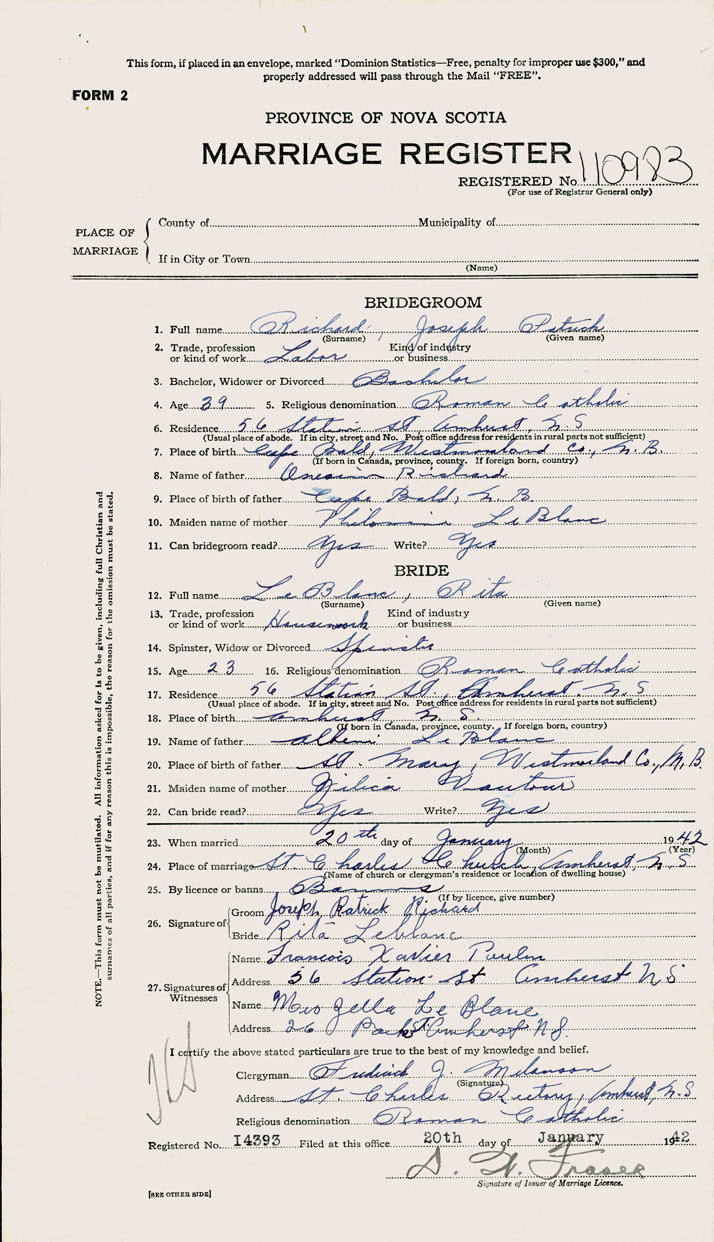 This form, if placed in an envelope, marked "Dominion Statistics—Free, penalty for improper use $300," and
properly addressed will pass through the Mail "FREE".
FORM 2
PROVINCE OF NOVA SCOTIA
MARRIAGE REGISTER
REGISTERED No. 110983
(For use of Registrar General only)
PLACE OF MARRIAGE
County of Municipality of
If in City or Town
(Name)
BRIDEGROOM
1. Full name Richard, Joseph Patrick
(Surname) (Given name)
2. Trade, profession or kind of work Labor Kind of industry or business
3. Bachelor, Widower or Divorced Bachelor
4. Age 39 5. Religious denomination Roman Catholic
6. Residence 56 Station St, Amherst, N.S
(Usual place of abode. If in city, street and No. Post office address for residents in rural parts not sufficient)
7. Place of birth Cape Bald, Westmorland Co., N.B.
(If born in Canada, province, county. If foreign born, country)
8. Name of father Richard
9. Place of birth of father Cape Bald, N.B.
10. Maiden name of mother LeBlanc
11. Can bridegroom read? Yes Write? Yes
BRIDE
12. Full name LeBlanc, Rita
(Surname) (Given name)
13. Trade, profession or kind of work Housework Kind of industry or business
14. Spinster, Widow or Divorced Spinster
15. Age 23 16. Religious denomination Roman Catholic
17. Residence 56 Station St. Amherst N.S
(Usual place of abode. If in city, street and No. Post office address for residents in rural parts not sufficient)
18. Place of birth Amherst, N.S.
(If born in Canada, province, county. If foreign born, country)
19. Name of father LeBlanc
20. Place of birth of father St. Mary, Westmorland Co., N.B.
21. Maiden name of mother Vautour
22. Can bride read? Yes Write? Yes
23. When married 20th day of January 1942
(Month) (Year)
24. Place of marriage St Charles Church, Amherst, N.S
(Name of church or clergyman's residence or location of dwelling house)
25. By licence or banns Banns
(If by licence, give number)
26. Signature of
Groom Joseph Patrick Richard
Bride Rita Leblanc
27. Signatures of Witnesses
Name Francois Xavier
Address 56 Station St Amherst NS
Name Zella Le Blanc
Address 26 Amherst N.S.
I certify the above stated particulars are true to the best of my knowledge and belief.
Clergyman J. Melanson
(Signature)
Address St. Charles Rectory, Amherst, N.S
Religious denomination Roman Catholic
Registered No. 14393 Filed at this office 20th day of January 1942
Fraser
Signature of Issuer of Marriage Licence.
[SEE OTHER SIDE]
NOTE.—This form must not be mutilated. All information asked for is to be given, including full Christian and
surnames of all parties, and if for any reason this is impossible, the reason for the omission must be stated.